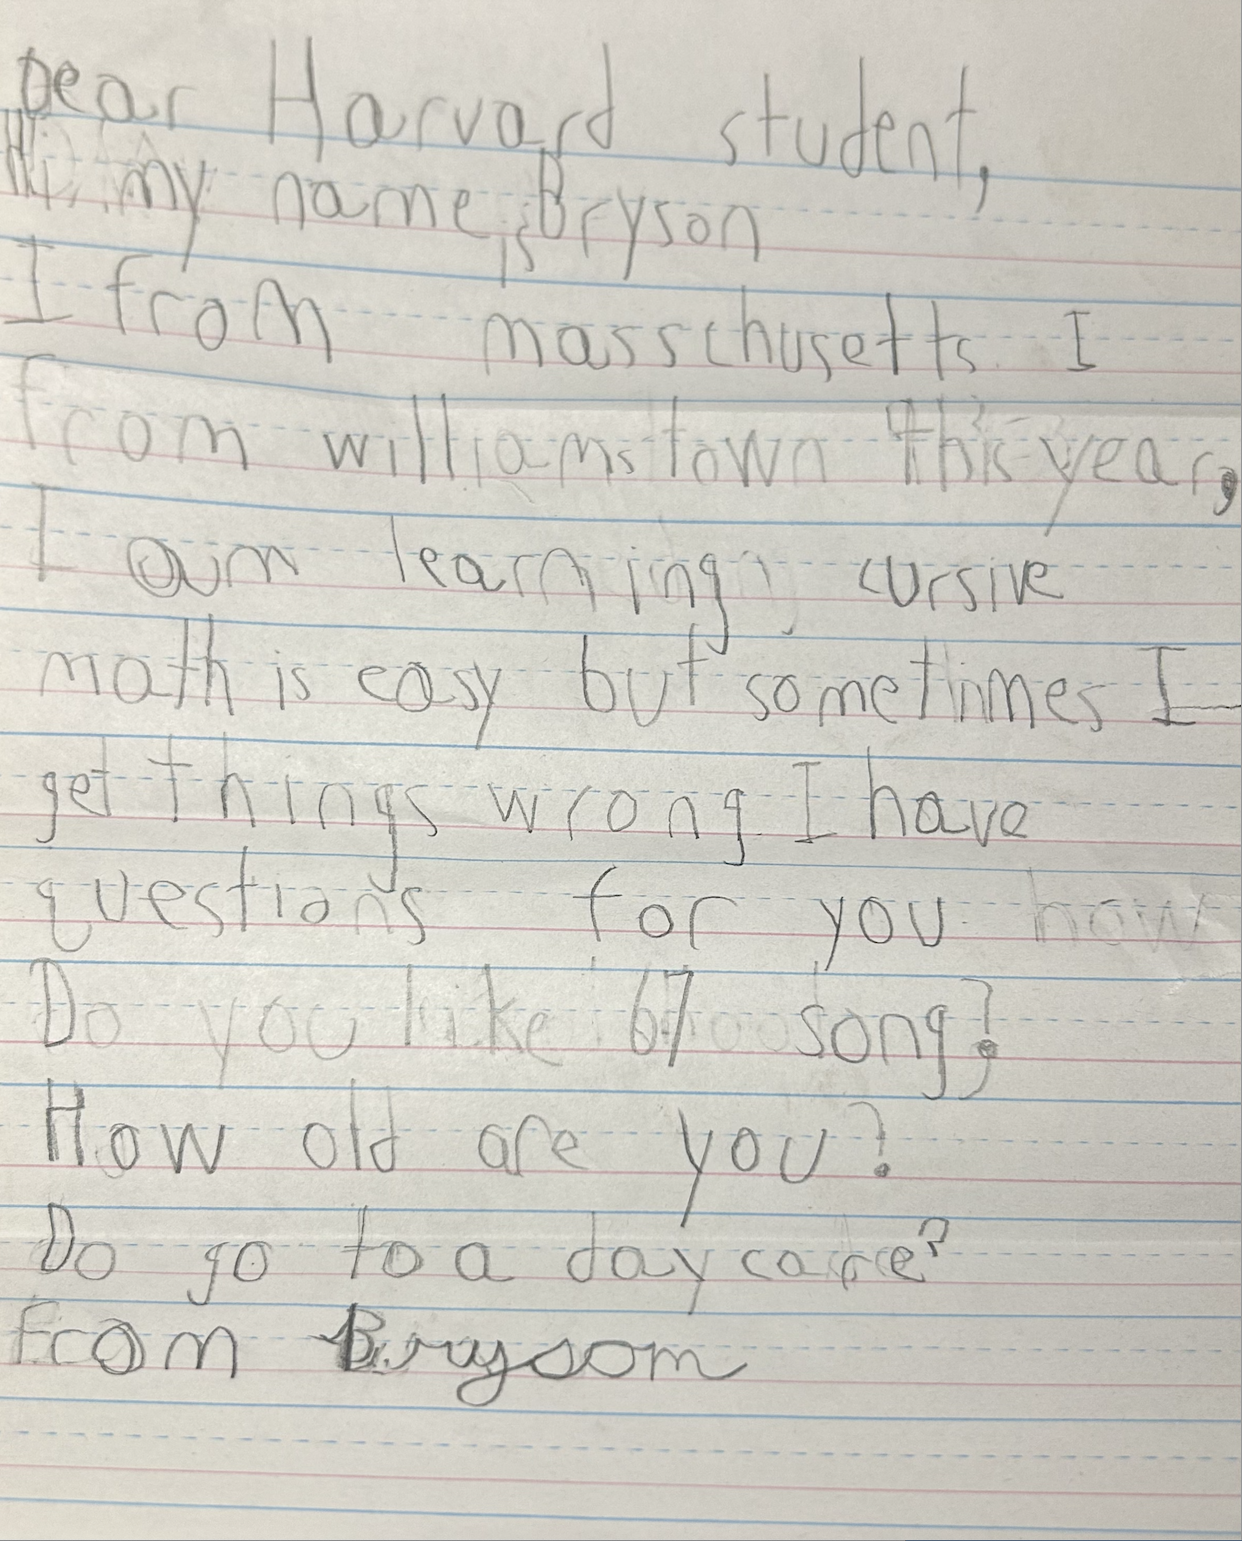 Dear Harvard student,
Hi, my name is Bryson
I from masschusetts I
from williamstown this year,
I am learning cursive
math is easy but sometimes I
get things wrong I have
questions for you how
Do you like 67 song?
How old are you?
Do go to a daycare?
From Bryson